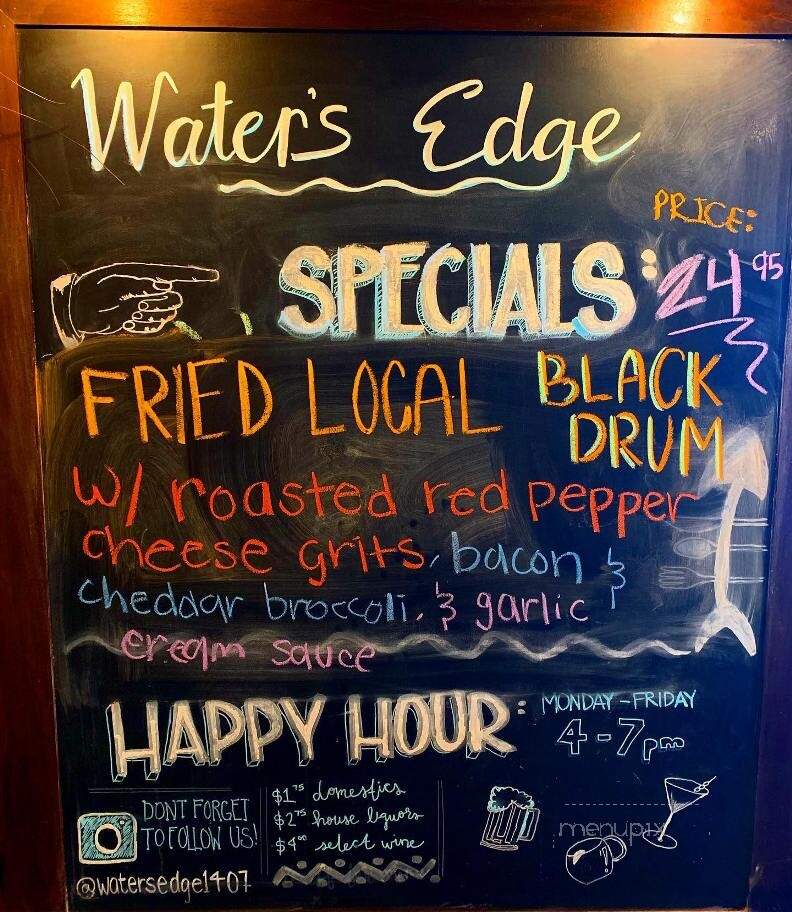 Water's Edge
PRICE:
SPECIALS: 24 95
FRIED LOCAL BLACK
DRUM
w/ roasted red pepper
cheese grits, bacon &
cheddar broccoli, & garlic
cream sauce
HAPPY HOUR: MONDAY-FRIDAY
4-7pm
DONT FORGET
TO FOLLOW US!
@watersedge1407
$1 75 domestics
$2 75 house liquors
$4 00 select wine
menupix